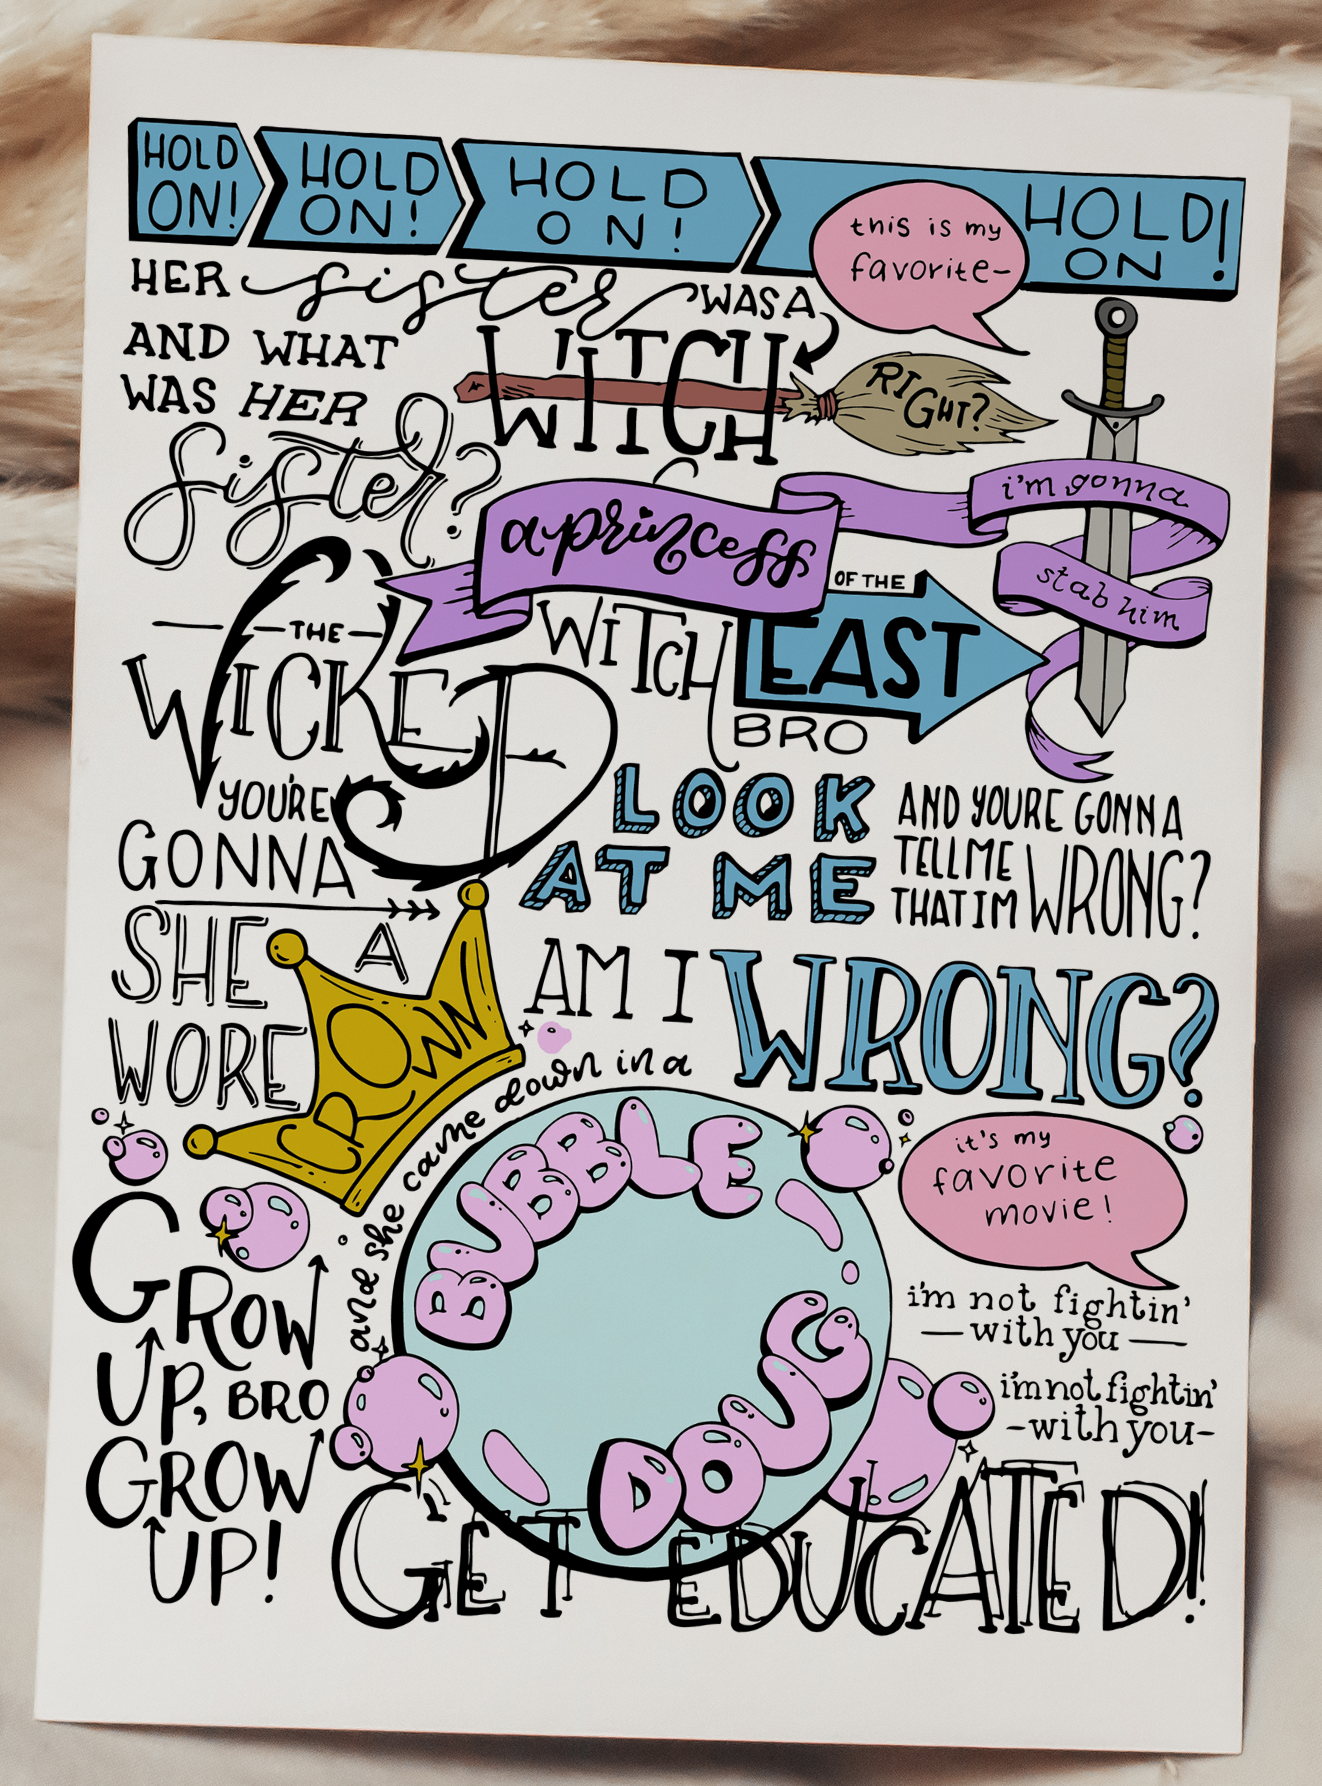 HOLD ON!
HOLD ON!
HOLD ON!
HOLD ON!
this is my
favorite-
HER sister WAS A
WITCH
RIGHT?
AND WHAT
WAS HER
sister?
a princess
i'm gonna
stab him
THE
WICKED
WITCH
OF THE
EAST
BRO
YOU'RE
GONNA
LOOK
AT ME
AND YOURE GONNA
TELL ME
THAT IM WRONG?
AM I WRONG?
SHE
WORE
A
CROWN
and she came down in a
BUBBLE
DOUG
it's my
favorite
movie!
GROW
UP, BRO
GROW
UP!
i'm not fightin'
with you
i'm not fightin'
-with you-
GET EDUCATED!